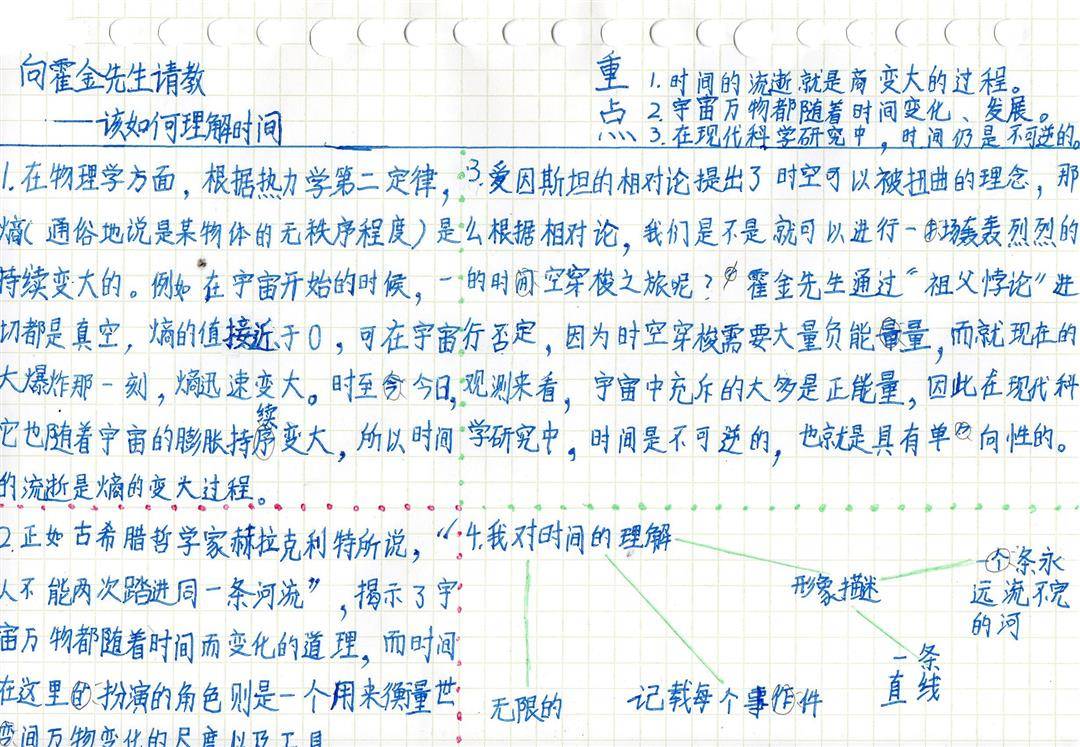 向霍金先生请教
——该如何理解时间
重点
1.时间的流逝就是商变大的过程。
2.宇宙万物都随着时间变化、发展。
3.在现代科学研究中，时间仍是不可逆的。
1.在物理学方面，根据热力学第二定律，
熵(通俗地说是某物体的无秩序程度)是
持续变大的。例如在宇宙开始的时候，一
切都是真空，熵的值接近于0，可在宇宙
大爆炸那一刻，熵迅速变大。时至今日，
它也随着宇宙的膨胀持续变大，所以时间
的流逝是熵的变大过程。
2.正如古希腊哲学家赫拉克利特所说，“
人不能两次踏进同一条河流”，揭示了宇
宙万物都随着时间而变化的道理，而时间
在这里扮演的角色则是一个用来衡量世
间万物变化的尺度以及工具
3.爱因斯坦的相对论提出了时空可以被扭曲的理念，那
么根据相对论，我们是不是就可以进行一场轰轰烈烈的
的时空穿梭之旅呢？霍金先生通过“祖父悖论”进
行否定，因为时空穿梭需要大量负能量，而就现在的
观测来看，宇宙中充斥的大多是正能量，因此在现代科
学研究中，时间是不可逆的，也就是具有单向性的。
4.我对时间的理解
无限的
记载每个事件
形象描述
一条永
远流不完
的河
一条
直线